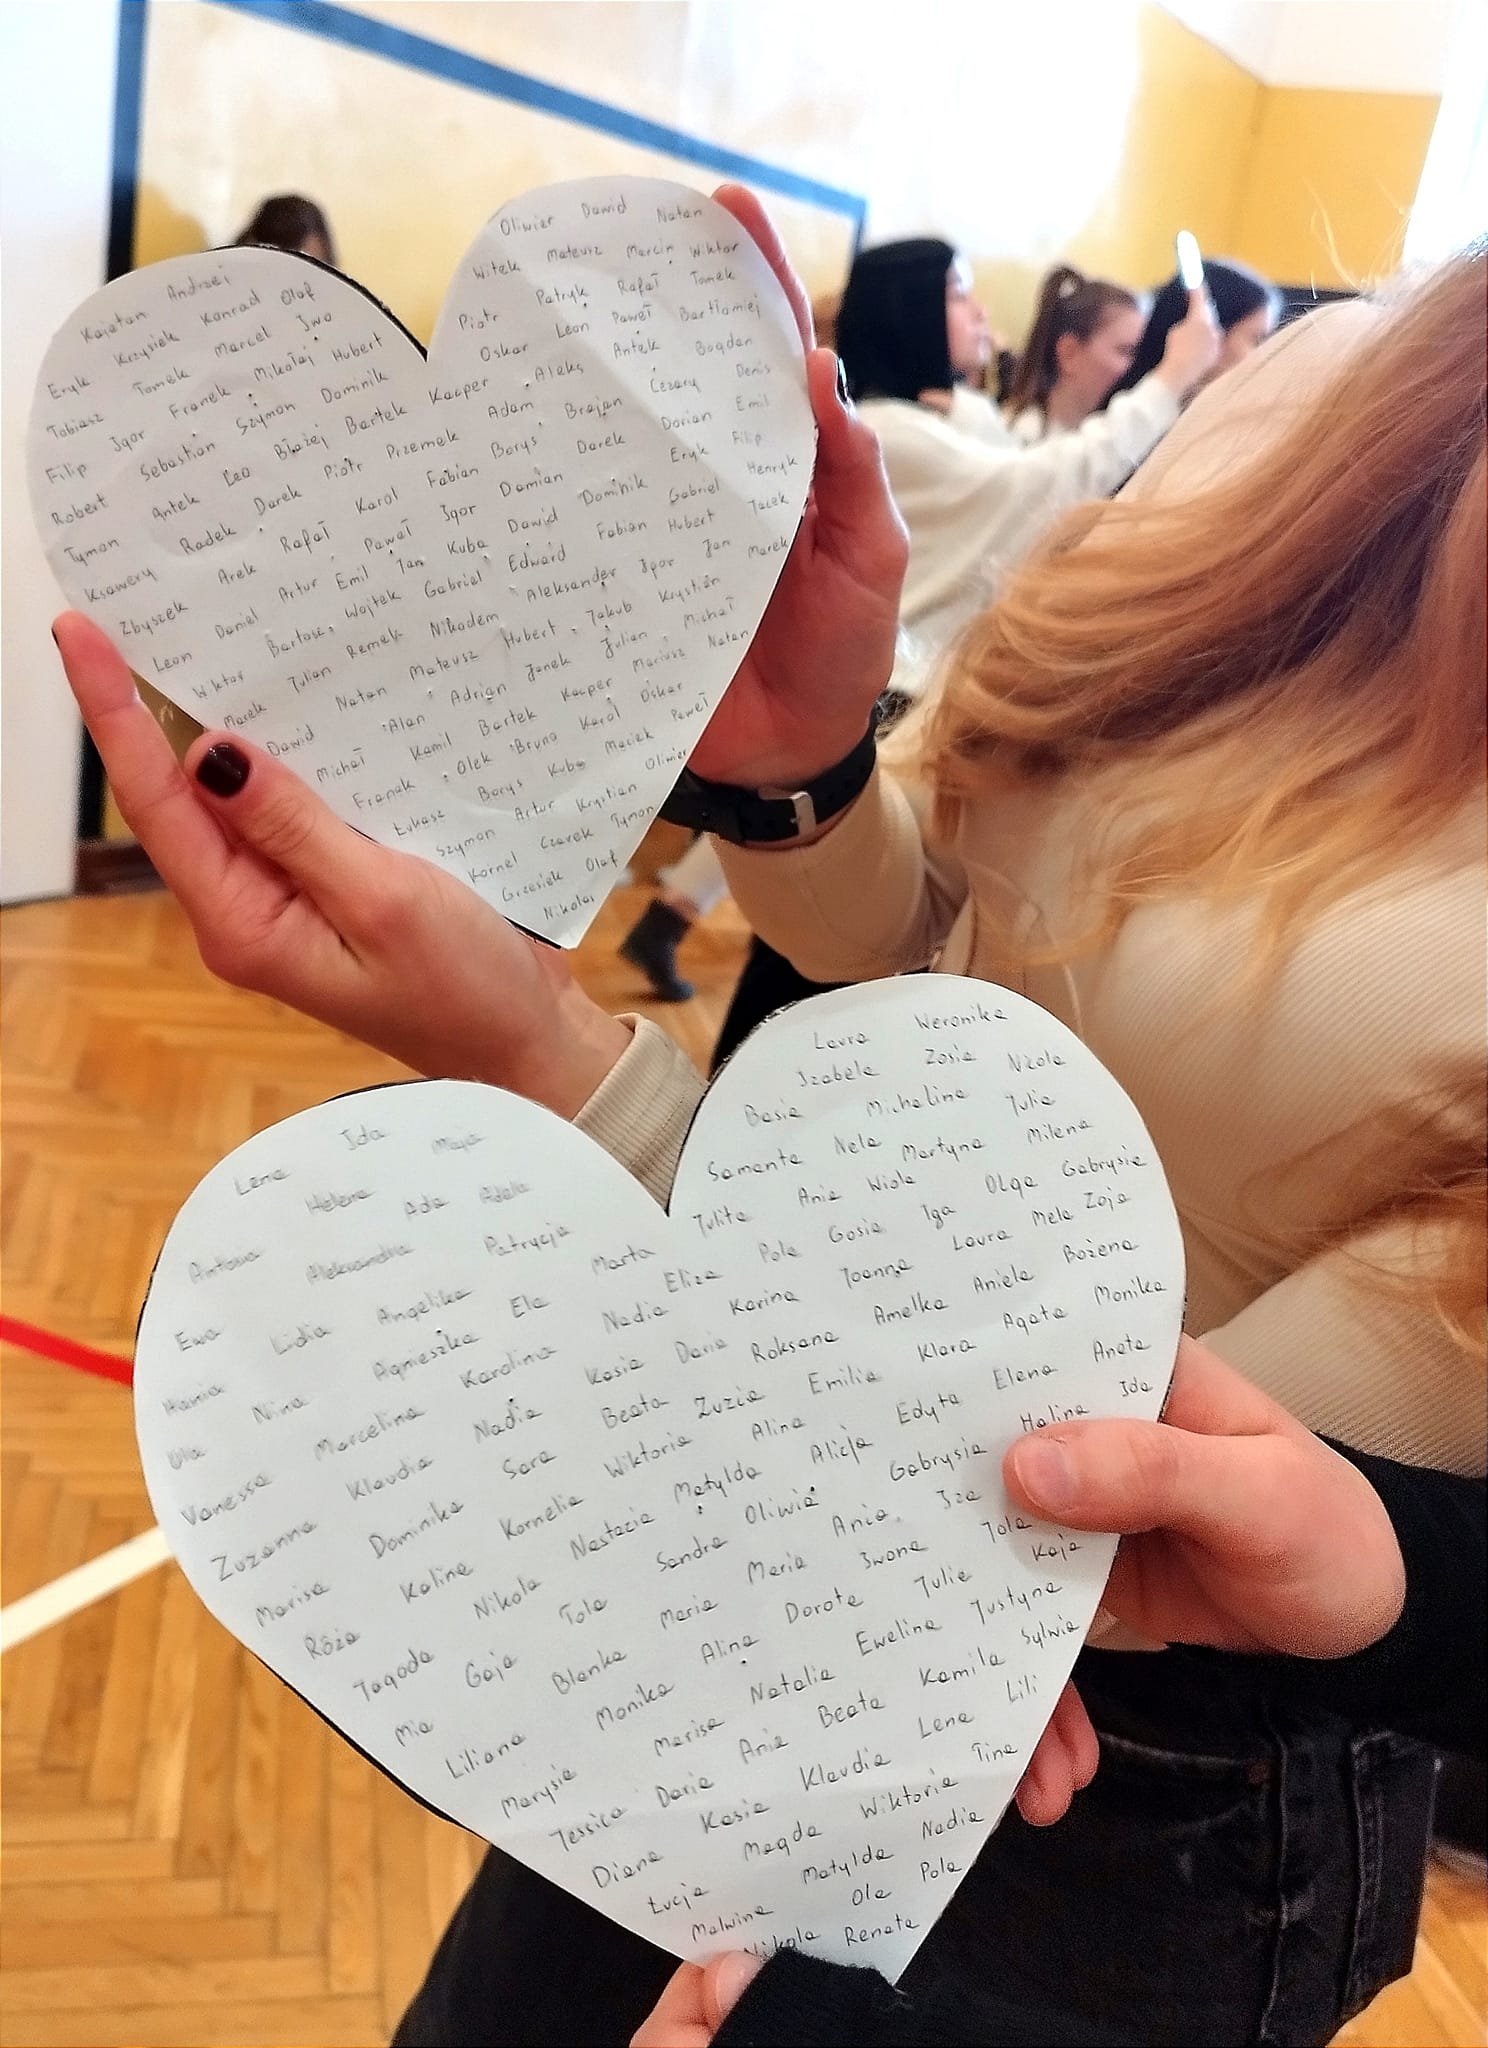 Oliwier Dawid Natan
Witek Mateusz Marcin Wiktor
Piotr Patryk Rafał Tomek
Oskar Leon Paweł Bartłomiej
Kacper Aleks Antek Bogdan
Kajetan Andrzej
Krzysiek Konrad Olaf
Eryk Tomek Marcel Iwo
Tobiasz Igor Franek Mikołaj Hubert
Filip Sebastian Szymon Dominik
Robert Antek Leo Błażej Bartek
Tymon Radek Darek Piotr Przemek Adam Brajan Cezary Denis
Ksawery Arek Rafał Karol Fabian Borys Darek Dorian Emil
Zbyszek Daniel Artur Paweł Igor Damian Dominik Eryk Filip
Leon Bartosz Emil Jan Kuba Dawid Fabian Gabriel Henryk
Wiktor Julian Wojtek Gabriel Edward Hubert Jacek
Marek Natan Remek Nikodem Aleksander Igor Jan Marek
Dawid Alan Mateusz Hubert Jakub Krystian
Michał Kamil Adrian Janek Julian Michał
Franek Olek Bartek Kacper Mariusz Natan
Łukasz Borys Bruno Karol Oskar
Szymon Artur Kuba Maciek Paweł
Kornel Czarek Krystian Oliwier
Grzesiek Olaf Tymon
Nikolas
Laura Weronika
Izabela Zosia Nikola
Basia Michalina Julia
Samanta Nela Martyna Milena
Julita Ania Wiola Olga Gabrysia
Marta Eliza Pola Gosia Iga Mela Zoja
Lena Ida Maja
Helena Ada Adela
Aleksandra Patrycja
Ewa Lidia Angelika Ela Nadia Karina Joanna Laura Bożena
Hania Nina Agnieszka Karolina Kasia Daria Roksana Amelka Aniela Monika
Ula Marcelina Nadia Beata Zuzia Emilia Klara Agata Aneta
Vanessa Klaudia Sara Wiktoria Alina Edyta Elena Ida
Zuzanna Dominika Kornelia Matylda Alicja Gabrysia Halina
Marisa Kalina Nastazia Sandra Oliwia Ania Iza
Róża Nikola Tola Maria Maria Iwona Jola Kaja
Jagoda Gaja Blanka Alina Dorota Julia Justyna
Mia Monika Natalia Ewelina Sylwia
Liliana Marisa Ania Beata Kamila Lili
Marysia Daria Kasia Klaudia Lena
Jessica Magda Wiktoria Tina
Diana Matylda Nadia
Łucja Ola Pola
Malwina Renata
Nikola